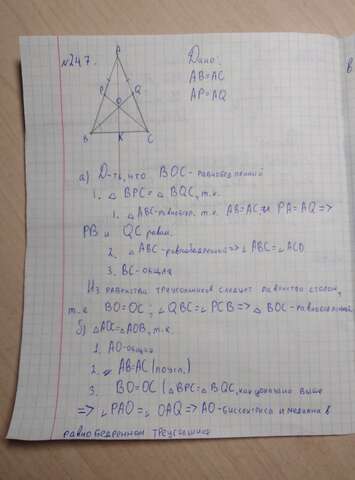 №247.
Дано:
AB=AC
AP=AQ
A
P
Q
O
B
K
C
а) Д-ть, что BOC - равнобедренный
1. △ BPC = △ BQC, т.к.
1. △ ABC-равнобедр. т.к. AB=AC и PA=AQ =>
PB и QC равны.
2. △ ABC-равнобедренный => ∠ABC=∠ACD
3. BC-общая
Из равенства треугольников следует равенство сторон,
т.е BO=OC; ∠QBC=∠PCB => △ BOC-равнобедренный
б) △AOC=△AOB, т.к.
1. AO-общая
2. AB=AC (по усл.)
3. BO=OC (△BPC=△BQC, как доказано выше
=> ∠PAO=∠OAQ => AO-биссектриса и медиана в
равнобедренном треугольнике
в